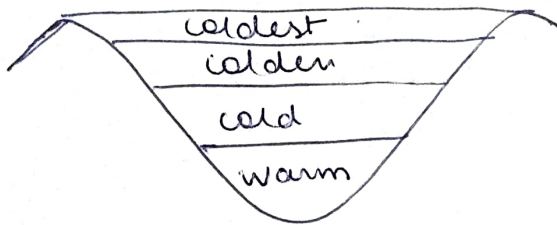 coldest
colder
cold
warm